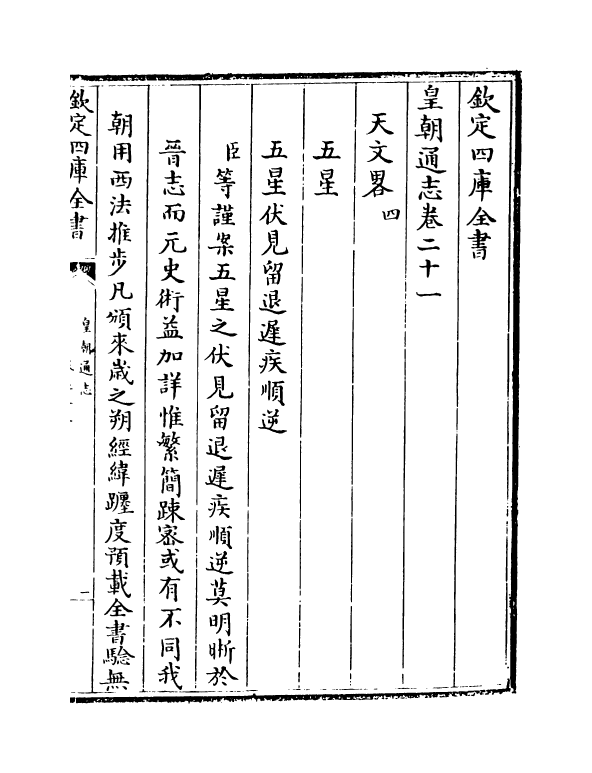 欽定四庫全書
皇朝通志卷二十一
天文畧四
五星
五星伏見留退遲疾順逆
臣等謹案五星之伏見留退遲疾順逆莫明晰於
晉志而元史術益加詳惟繁簡踈宻或有不同我
朝用西法推步凡頒來嵗之朔經緯躔度預載全書驗無
欽定四庫全書
皇朝通志